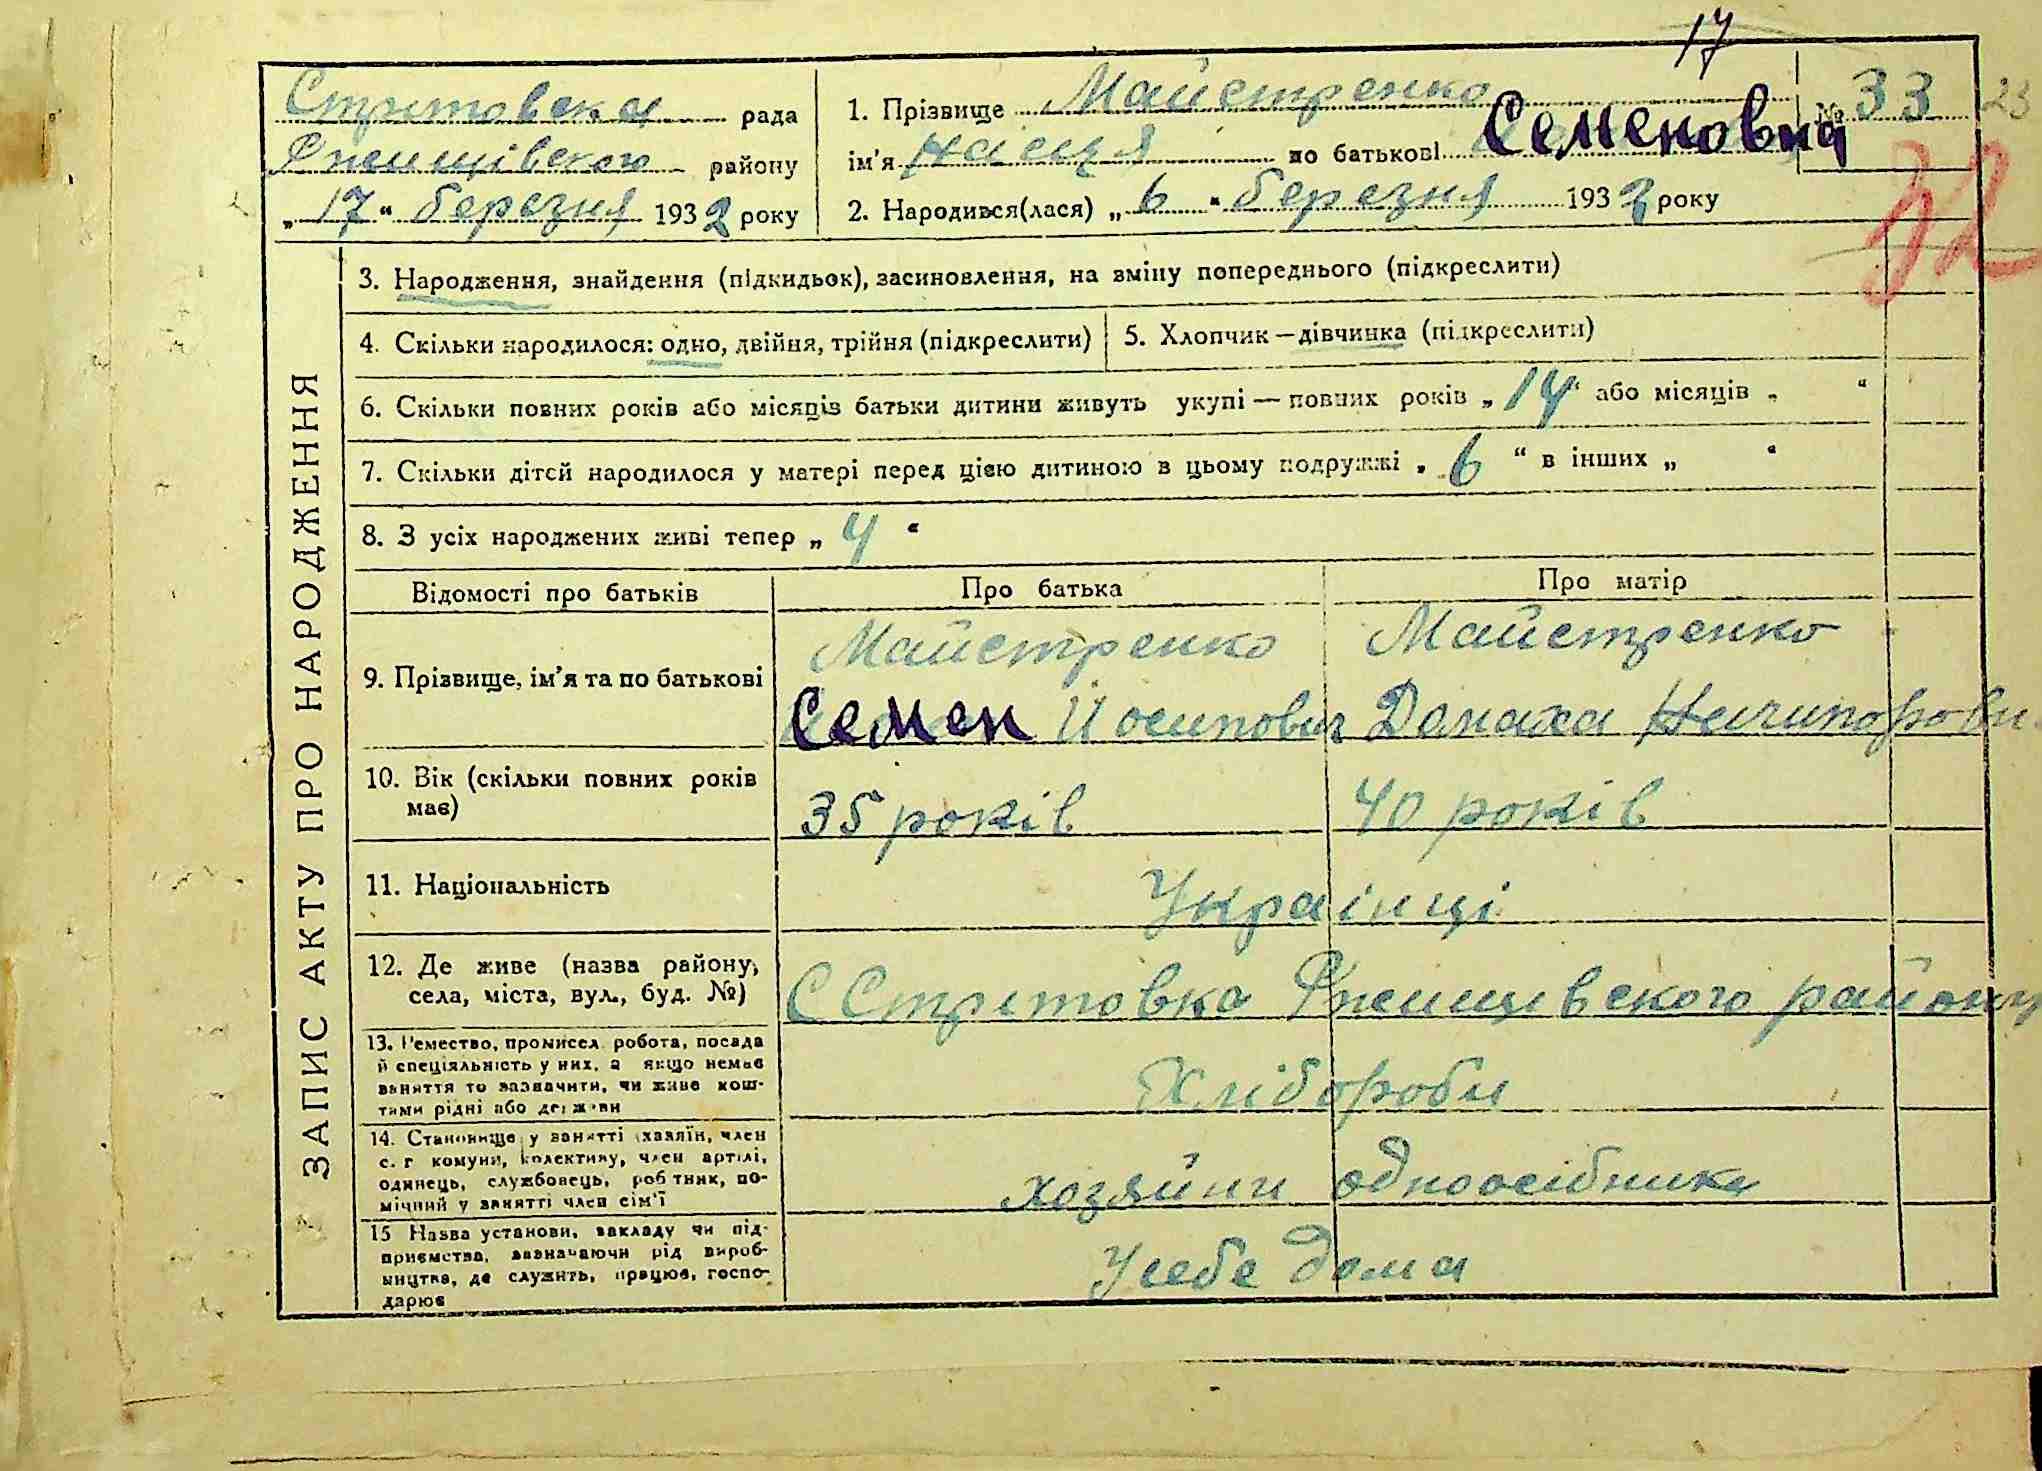 17
Стритовска рада
Ржищівского району
„17“ березня 1932 року
1. Прізвище Майстренко
ім’я Насця по батькові Семеновна
2. Народився(лася) „6“ березня 1932 року
№ 33
23
32
ЗАПИС АКТУ ПРО НАРОДЖЕННЯ
3. Народження, знайдення (підкидьок), засиновлення, на зміну попереднього (підкреслити)
4. Скільки народилося: одно, двійня, трійня (підкреслити)
5. Хлопчик — дівчинка (підкреслити)
6. Скільки повних років або місяців батьки дитини живуть укупі — повних років „14“ або місяців „ “
7. Скільки дітей народилося у матері перед цією дитиною в цьому подружжі „6“ в інших „ “
8. З усіх народжених живі тепер „4“
Відомості про батьків Про батька Про матір
9. Прізвище, ім’я та по батькові
Майстренко
Семен Йосипович
Майстренко
Домаха Ничипоровн
10. Вік (скільки повних років
має)
35 років
40 років
11. Національність
Українці
12. Де живе (назва району,
села, міста, вул., буд. №)
С Стритовка Ржищивского району
13. Ремество, промисел, робота, посада
й спеціяльність у них, а якщо немає
заняття то зазначити, чи живе кош-
тами рідні або держави
Хлібороби
14. Становище у занятті (хазяїн, член
с. г комуни, колективу, член артілі,
одинець, службовець, робітник, по-
мічний у занятті член сім’ї
хозяйни одноосібники
15 Назва установи, закладу чи під-
приємства, зазначаючи рід вироб-
ництва, де служить, працює, госпо-
дарює
У себе дома